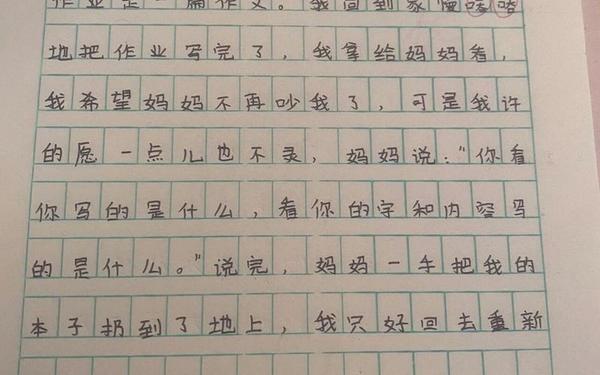 作业是一篇作文。我回到家慢
地把作业写完了，我拿给妈妈看，
我希望妈妈不再吵我了，可是我许
的愿一点儿也不灵，妈妈说：“你看
你写的是什么，看你的字和内容写
的是什么。”说完，妈妈一手把我的
本子扔到了地上，我只好回去重新